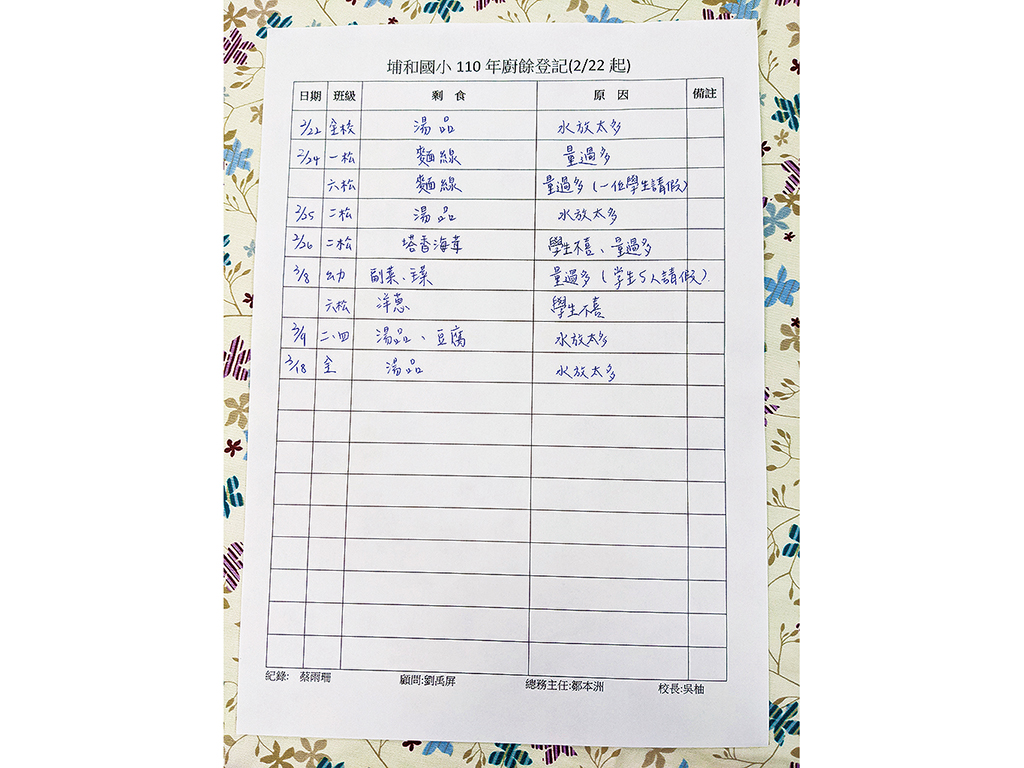 埔和國小 110 年廚餘登記(2/22 起)
日期 班級 剩 食 原 因 備註
2/22 全校 湯品 水放太多
2/24 一松 麵線 量過多
六松 麵線 量過多(一位學生請假)
2/25 二松 湯品 水放太多
2/26 二松 塔香海茸 學生不喜、量過多
3/8 幼 副菜、主菜 量過多(学生5人請假).
六松 洋蔥 學生不喜
3/9 二、四 湯品、豆腐 水放太多
3/18 全 湯品 水放太多
紀錄: 蔡雨珊 顧問:劉禹屏 總務主任:鄒本洲 校長:吳柚